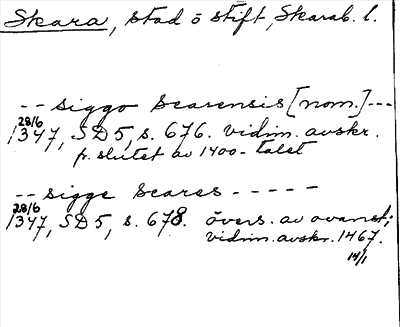 Skara, stad o stift, Skarab. l.
-- siggo scarensis [nom.] ---
28/6
1347, SD 5, s. 676. vidim. avskr.
fr. slutet av 1400-talet
-- sigge scares -----
28/6
1347, SD 5, s. 678. övers. av ovanst;
vidim. avskr. 1467.
14/1